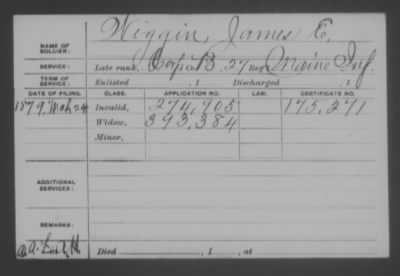 Wiggin, James E.
NAME OF SOLDIER:
SERVICE: Late rank, Corp Co. B, 27 Reg't Maine Inf.
TERM OF SERVICE: Enlisted , 1 Discharged , 1
DATE OF FILING. CLASS. APPLICATION NO. LAW. CERTIFICATE NO.
1879, Mch 24 Invalid, 274,905 175,271
Widow, 393,384
Minor,
ADDITIONAL SERVICES:
REMARKS:
Died , 1 , at